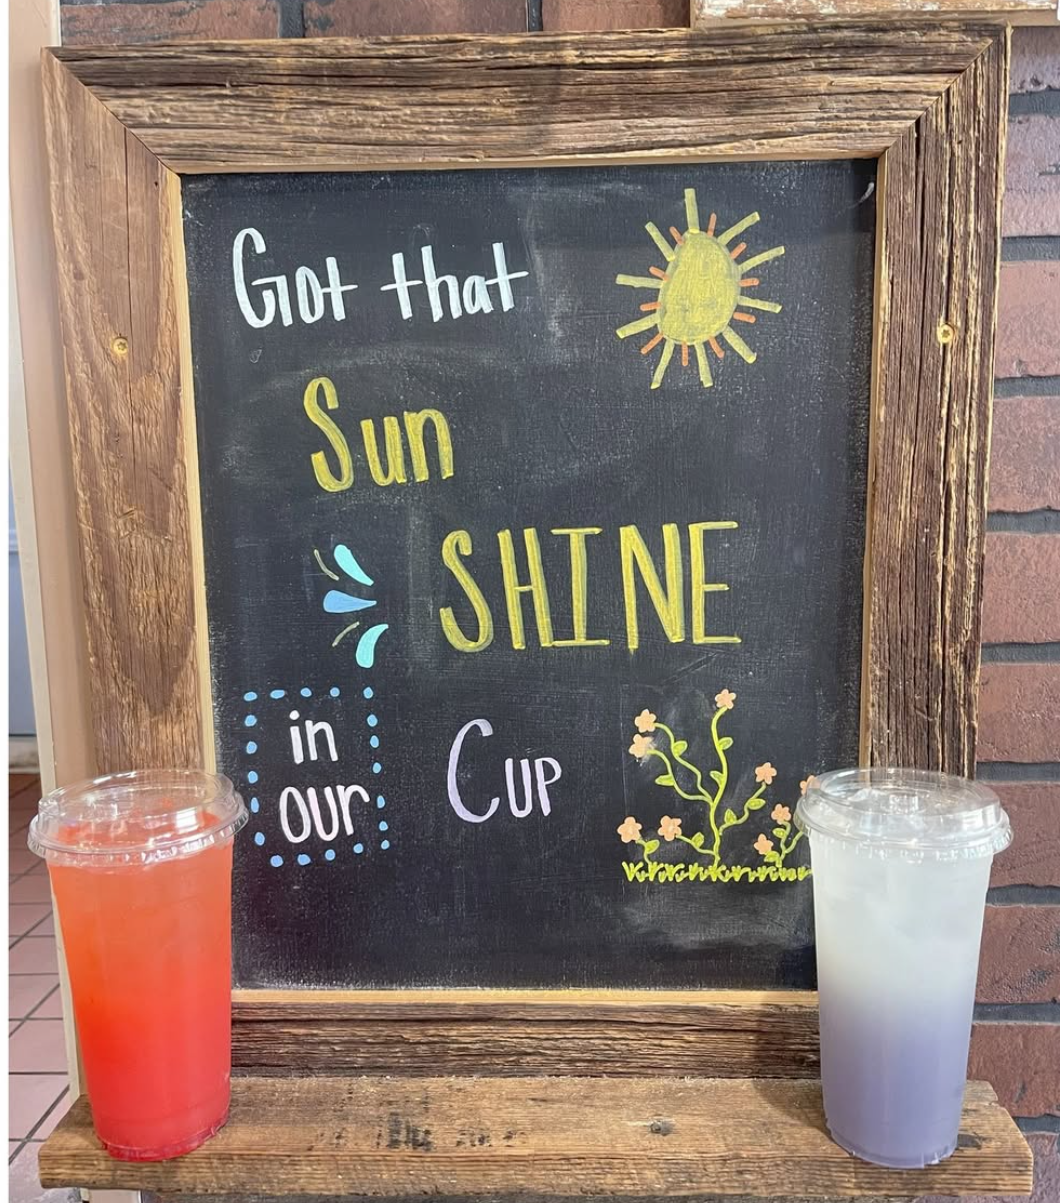 Got that
Sun
SHINE
in
our
CUP